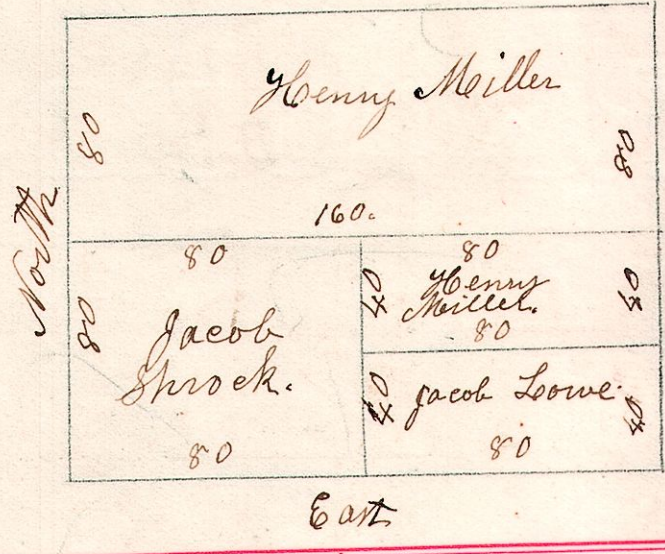 Henry Miller
80
80
160.
North
80
Jacob
Shrock.
80
80
80
40
Henry
Miller.
80
40
40
Jacob Lowe.
40
80
East